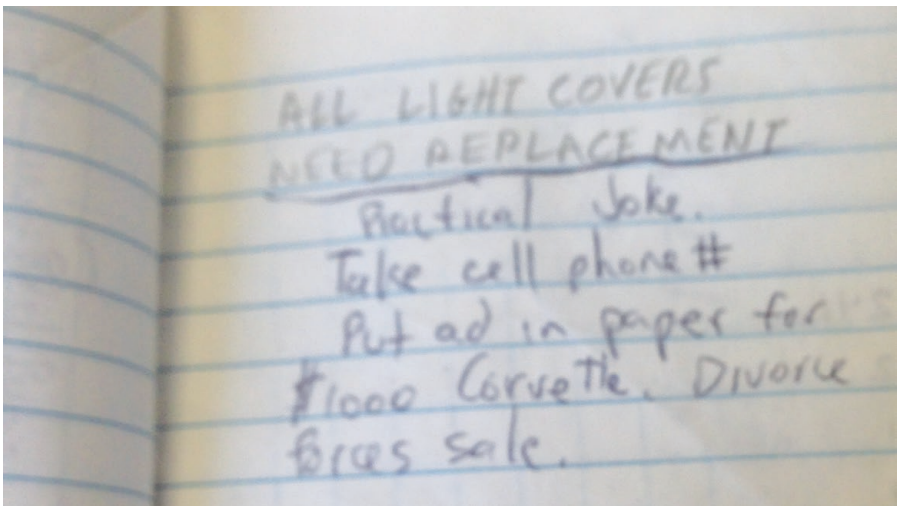 ALL LIGHT COVERS
NEED REPLACEMENT
Practical Joke.
Take cell phone #
Put ad in paper for
$1000 Corvette. Divorce
forces sale.